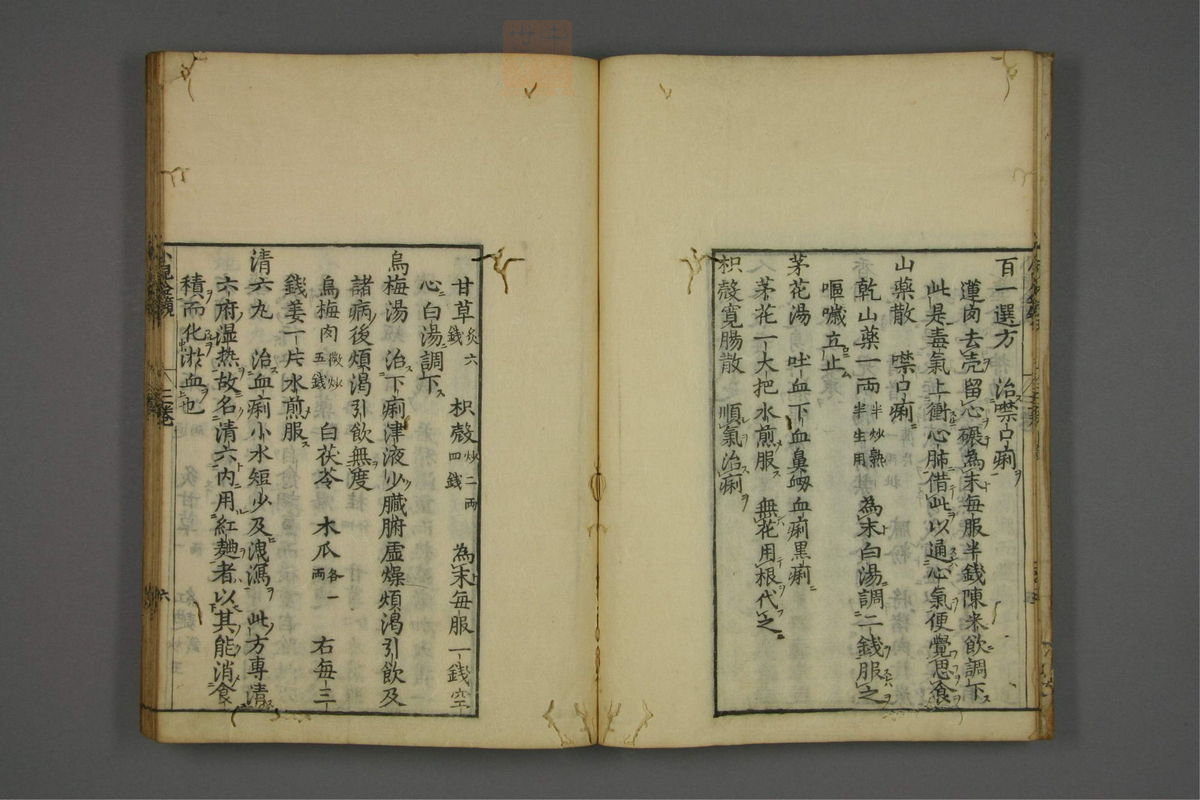 百一選方　治噤口痢
蓮肉去壳留心碾為末每服半錢陳米飲調下
此是毒氣上衝心肺借此以通心氣便覺思食
山藥散　噤口痢
乾山藥一兩半炒熟半生用　為末白湯調二錢服之
嘔噦立止
茅花湯　吐血下血鼻衂血痢黑痢
茅花一大把水煎服　無花用根代之
枳殼寬腸散　順氣治痢
甘草炙六錢　枳殼炒二兩四錢　為末每服一錢空
心白湯調下
烏梅湯　治下痢津液少臟腑虛燥煩渴引飲及
諸病後煩渴引飲無度
烏梅肉微炒五錢　白茯苓　木瓜各一兩　右每三
錢姜一片水煎服
清六丸　治血痢小水短少及洩瀉　此方專清
六府湿热故名清六内用紅麯者以其能消食
積而化淤血也
二卷
六